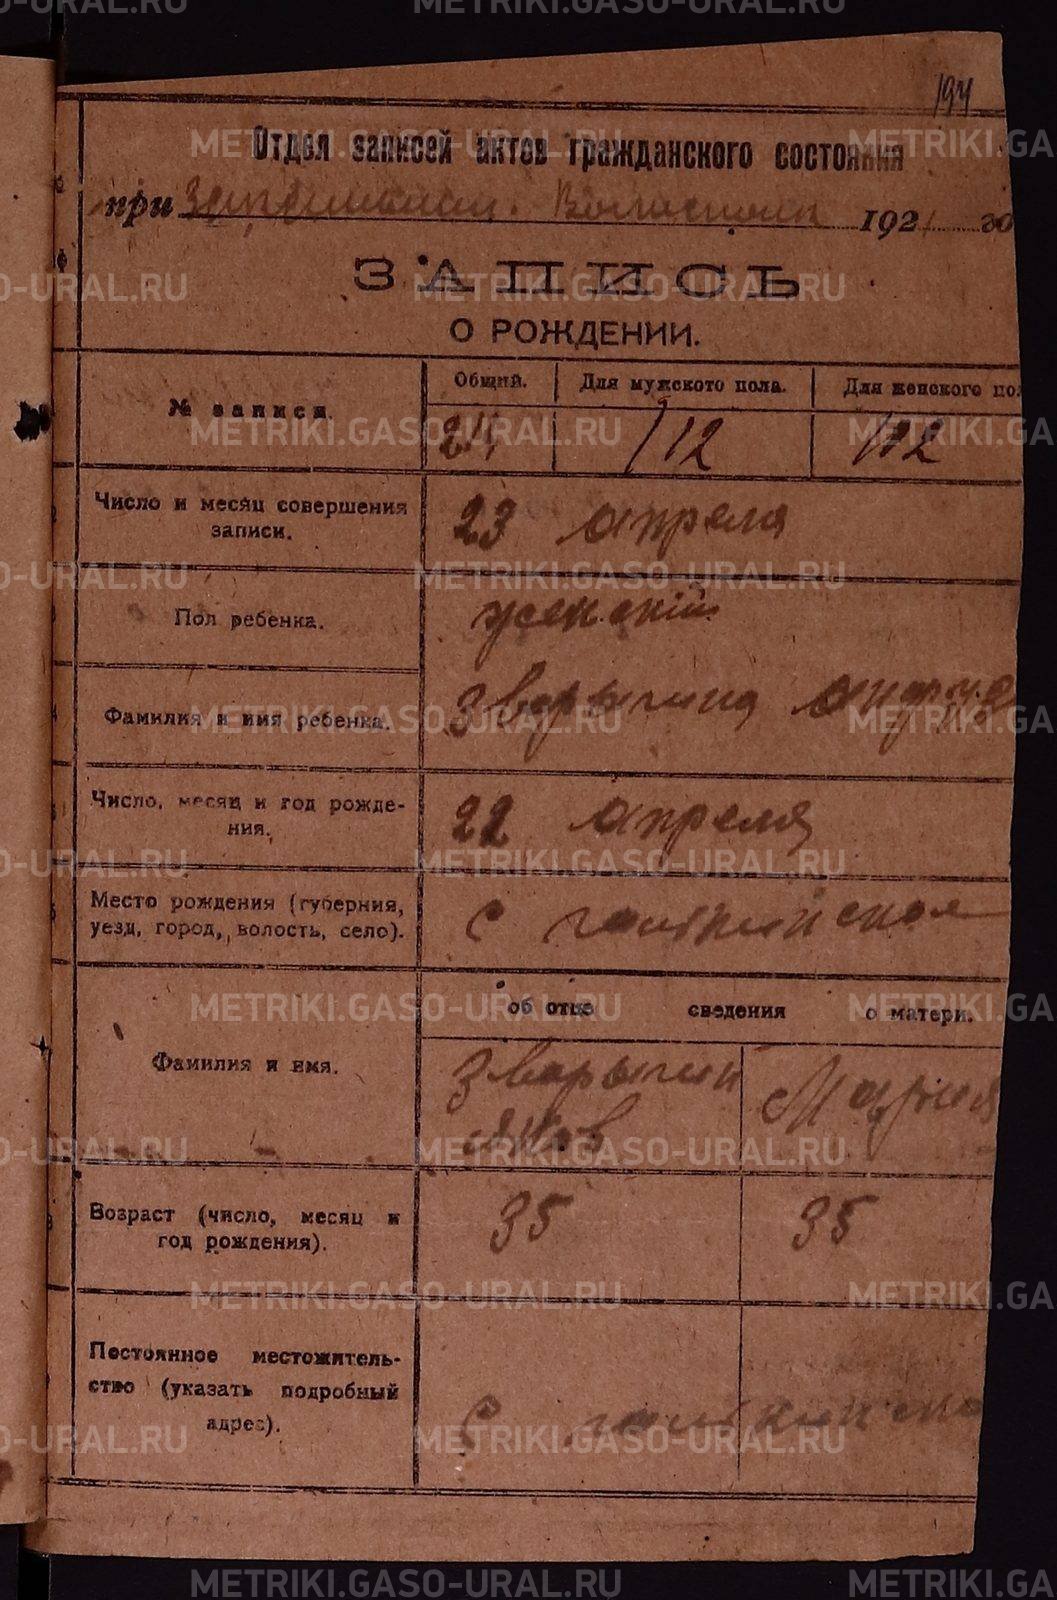 METRIKI.GASO-URAL.RU
194
Отдел записей актов гражданского состояния
при 1921 го
ЗАПИСЬ
О РОЖДЕНИИ.
№ записи.
Общий.
Для мужского пола.
Для женского пол
112
112
Число и месяц совершения
записи.
23 апреля
Пол ребенка.
женскій
Фамилия и имя ребенка.
Зварыгина
Число, месяц и год рожде-
ния.
22 апреля
Место рождения (губерния,
уезд, город, волость, село).
с
об отце сведения о матери.
Фамилия и имя.
Зварыгин
Яков
Мария
Возраст (число, месяц и
год рождения).
35
35
Постоянное местожитель-
ство (указать подробный
адрес).
с